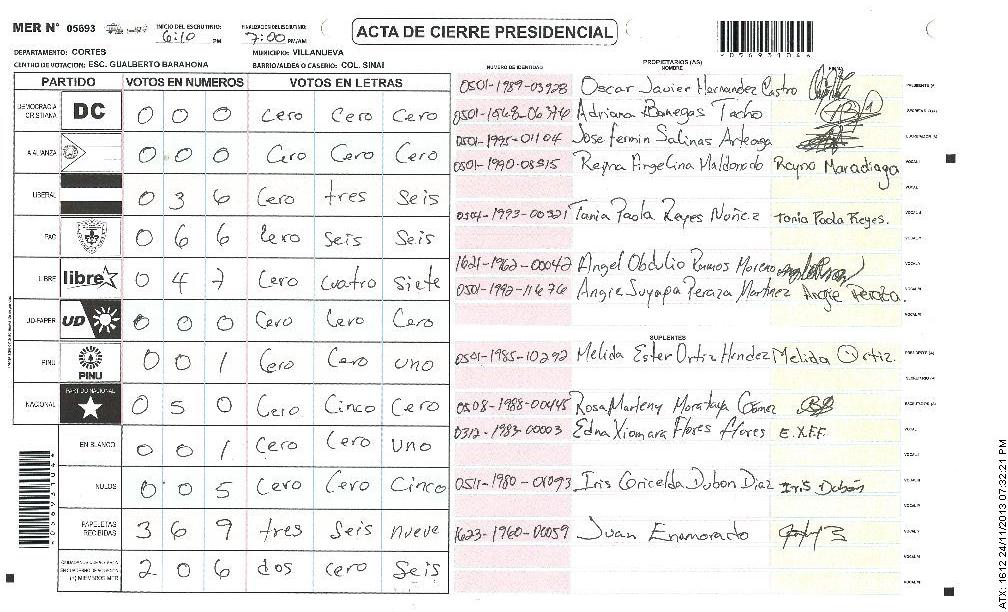 MER N° 05693 INICIO DEL ESCRUTINIO: 6:10 PM FINALIZACION DEL ESCRUTINIO: 7:00 PM/AM ACTA DE CIERRE PRESIDENCIAL
DEPARTAMENTO: CORTES MUNICIPIO: VILLANUEVA
CENTRO DE VOTACION: ESC. GUALBERTO BARAHONA BARRIO/ALDEA O CASERIO: COL. SINAI
PARTIDO VOTOS EN NUMEROS VOTOS EN LETRAS
DEMOCRACIA CRISTIANA DC 0 0 0 Cero Cero Cero
ALIANZA 0 0 0 Cero Cero Cero
LIBERAL 0 3 6 Cero tres Seis
PAC 0 6 6 Cero Seis Seis
LIBRE libre 0 4 7 Cero Cuatro Siete
UD-FAPER UD 0 0 0 Cero Cero Cero
PINU PINU 0 0 1 Cero Cero uno
NACIONAL PARTIDO NACIONAL 0 5 0 Cero Cinco Cero
EN BLANCO 0 0 1 Cero Cero uno
NULOS 0 0 5 Cero Cero Cinco
PAPELETAS RECIBIDAS 3 6 9 tres Seis nueve
MIEMBROS MER 2 0 6 dos cero Seis
NUMERO DE IDENTIDAD PROPIETARIOS (AS) NOMBRE FIRMA
0501-1989-03928 Oscar Javier Hernandez Castro PRESIDENTE (A)
0501-1568-06376 Adriana Banegas Tacho SECRETARIO (A)
0501-1995-01104 Jose fermin Salinas Arteaga ESCRUTADOR (A)
0501-1990-08515 Reyna Angelina Maldonado Reyna Maradiaga VOCAL I
0504-1993-00321 Tania Paola Reyes Nuñez Tania Paola Reyes.
1621-1962-00042 Angel Obdulio Ramos Moreno
0501-1992-11676 Angie Suyapa Peraza Martinez Angie Peraza.
SUPLENTES
0501-1985-10292 Melida Ester Ortiz Hendez Melida Ortiz. PRESIDENTE (A)
SECRETARIO (A)
0508-1988-00445 Rosa Marleny Morataya Gomez ESCRUTADOR (A)
0312-1983-00003 Edna Xiomara Flores flores E.X.F.F. VOCAL I
0511-1980-01093 Iris Goricelda Dubon Diaz Iris Dubón
1623-1960-00059 Juan Enamorado
ATX: 1612 24/11/2013 07:32:21 PM